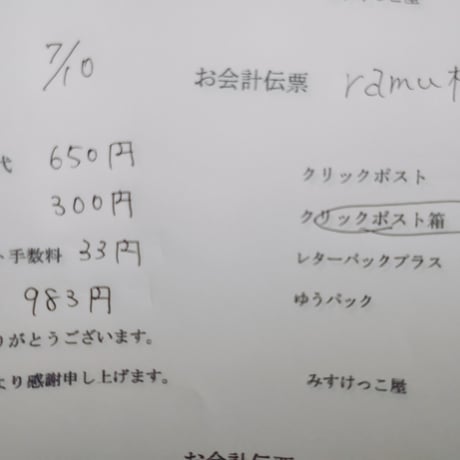 けっこ屋
7/10
お会計伝票 ramu様
代 650円
クリックポスト
300円
クリックポスト箱
ト手数料 33円
レターパックプラス
983円
ゆうパック
りがとうございます。
より感謝申し上げます。
みすけっこ屋
お会計伝票